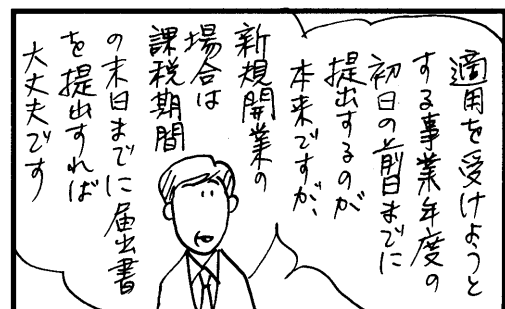 適用を受けようと
する事業年度の
初日の前日までに
提出するのが
本来ですが、
新規開業の
場合は
課税期間
の末日までに届出書
を提出すれば
大丈夫です